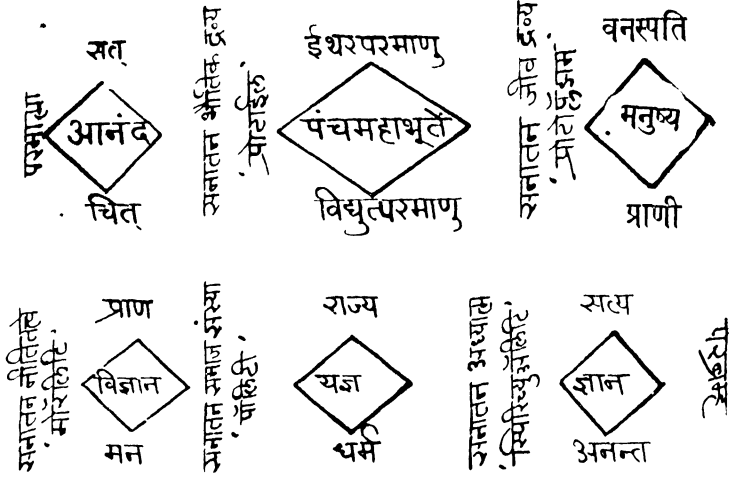 परमात्मा
सत्
आनंद
चित्
सनातन भौतिक द्रव्य
प्रोटाईल
ईथरपरमाणु
पंचमहाभूतें
विद्युत्परमाणु
सनातन जीव द्रव्य
प्रोटोप्लॅझम
वनस्पति
मनुष्य
प्राणी
सनातन नीतितत्वे
मॉरॅलिटि
प्राण
विज्ञान
मन
सनातन समाज संस्था
पॉलिटी
राज्य
यज्ञ
धर्म
सनातन अध्यात्म
स्पिरिच्युअॅलिटि
सत्य
ज्ञान
अनन्त
परब्रह्म